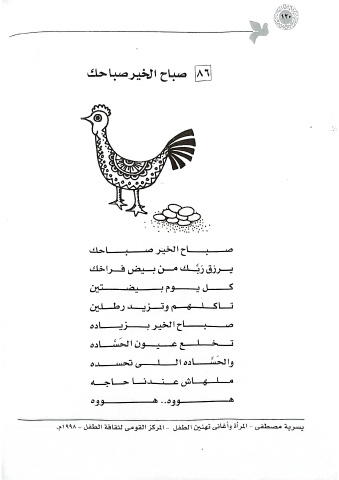 ١٢٠
٨٦ صباح الخير صباحك
صباح الخير صباحك
يرزق ربك من بيض فراخك
كل يوم بيضتين
تاكلهم وتزيد رطلين
صباح الخير بزياده
تخلع عيون الحسّاده
والحسّاده اللى تحسده
ملهاش عندنا حاجه
هـووه.. هـووه
يسرية مصطفى - المرأة وأغانى تهنين الطفل - المركز القومى لثقافة الطفل - ١٩٩٨م.